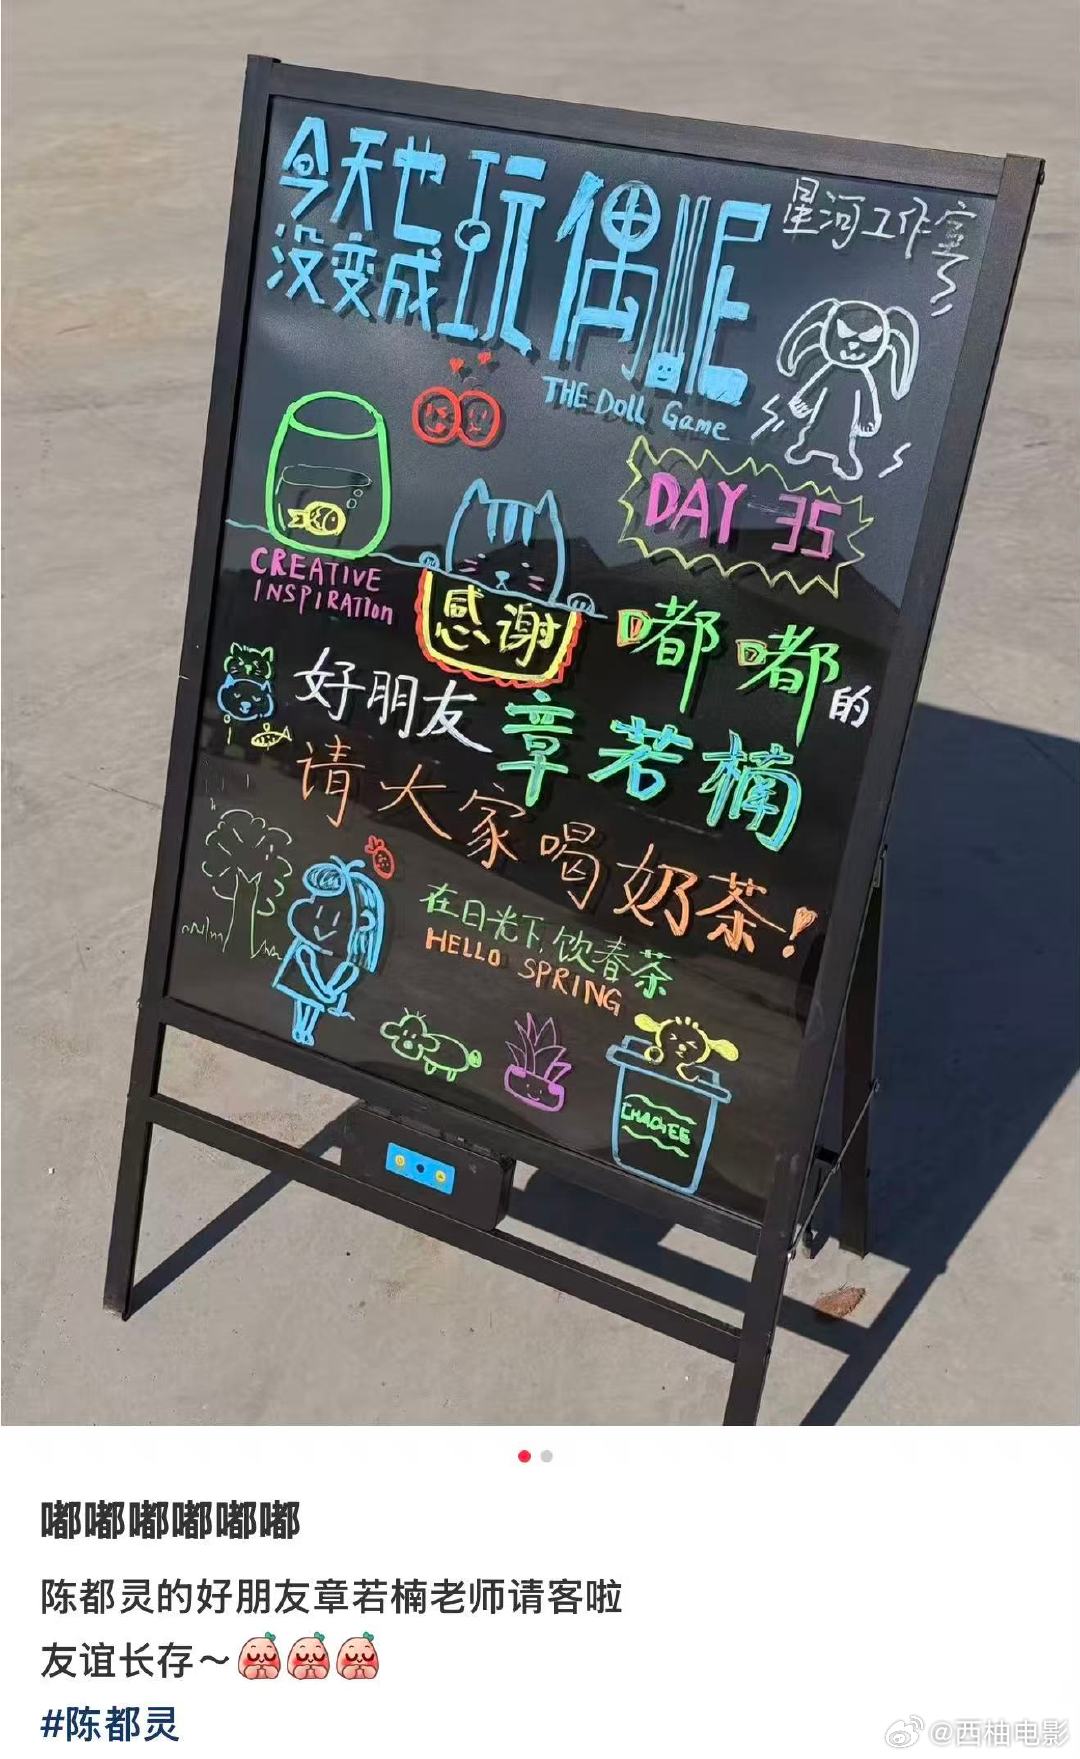 今天也
没变成玩偶呢
星河工作室
THE DOLL Game
DAY 35
CREATIVE
INSPIRATION
感谢
嘟嘟的
好朋友章若楠
请大家喝奶茶!
在日光下,饮春茶
HELLO SPRING
CHAGEE
嘟嘟嘟嘟嘟嘟
陈都灵的好朋友章若楠老师请客啦
友谊长存～
#陈都灵
@西柚电影